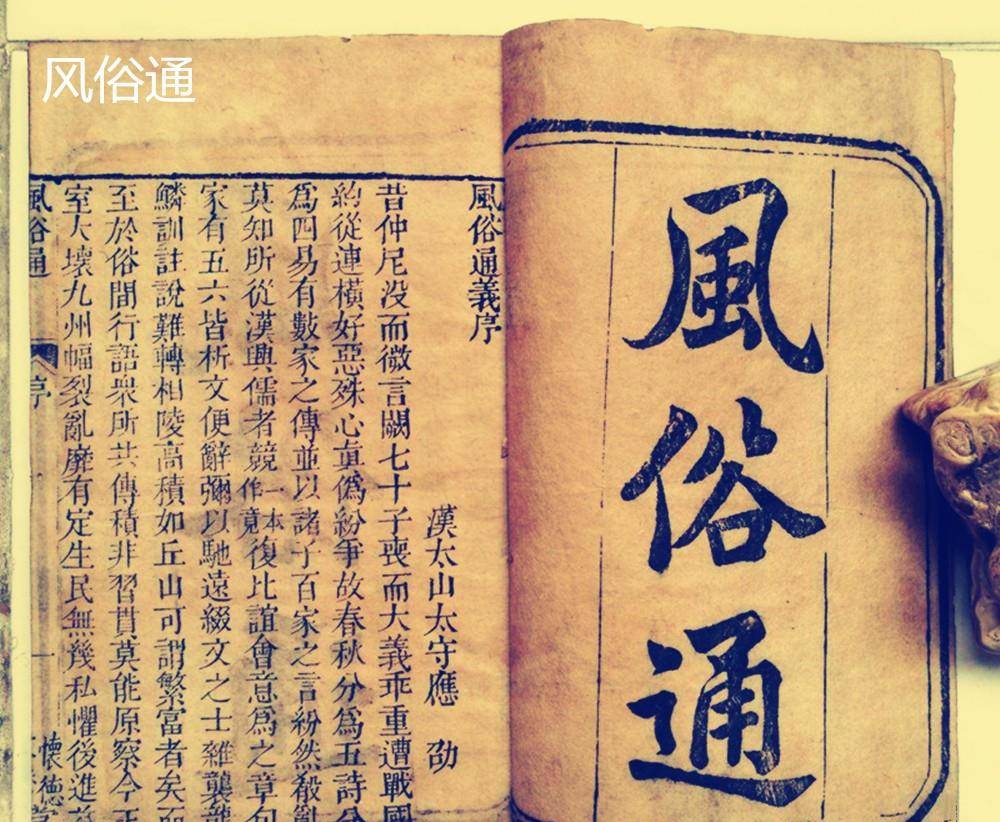 风俗通
風俗通
風俗通義序
漢太山太守應 劭
昔仲尼没而微言闕七十子喪而大義乖重遭戰國
約從連橫好惡殊心眞僞紛爭故春秋分爲五詩分
爲四易有數家之傳並以諸子百家之言紛然殽亂
莫知所從漢興儒者競一本作竟復比誼會意爲之章句
家有五六皆析文便辭彌以馳遠綴文之士雜襲龍
鱗訓註說難轉相陵高積如丘山可謂繁富者矣而
至於俗間行語衆所共傳積非習貫莫能原察今王
室大壞九州幅裂亂靡有定生民無幾私懼後進
風俗通 序 一 懷德